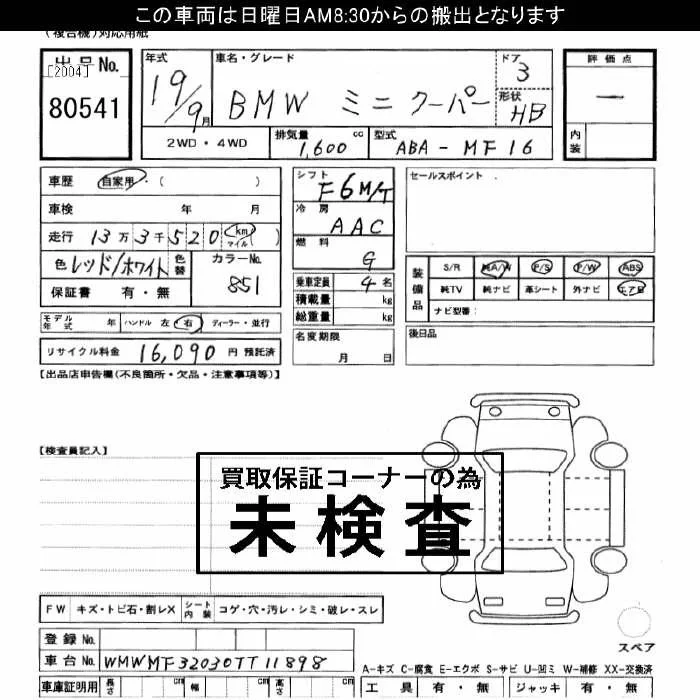 この車両は日曜日AM8:30からの搬出となります
(複合機)対応用紙
出品No. [2004] 80541
年式 19/9月
車名・グレード BMW ミニ クーパー
ドア 3
形状 HB
評価点 —
内装
2WD・4WD
排気量 1,600 cc
型式 ABA-MF16
車歴 自家用・( )
車検 年 月
走行 13万3千520 km マイル ( )
色 レッド/ホワイト 色替 カラーNo. 851
保証書 有・無
シフト F6M/T
冷房 AAC
燃料 G
乗車定員 4名
積載量 kg
総重量 kg
名変期限 月 日
セールスポイント
装備品 S/R 純A/W P/S P/W ABS
純TV 純ナビ 革シート 外ナビ エアB
ナビ型番:
後日品
モデル年式 年 ハンドル 左 右 ディーラー・並行
リサイクル料金 16,090 円 預託済
【出品店申告欄(不良箇所・欠品・注意事項等)】
【検査員記入】
買取保証コーナーの為
未検査
FW キズ・トビ石・割レX シート内装 コゲ・穴・汚レ・シミ・破レ・スレ
登録No.
車台No. WMWMF32030TT11898
スペア
A-キズ C-腐食 E-エクボ S-サビ U-凹ミ W-補修 XX-交換済
車庫証明用 長さ cm 幅 cm 高さ cm
工具 有・無 ジャッキ 有・無